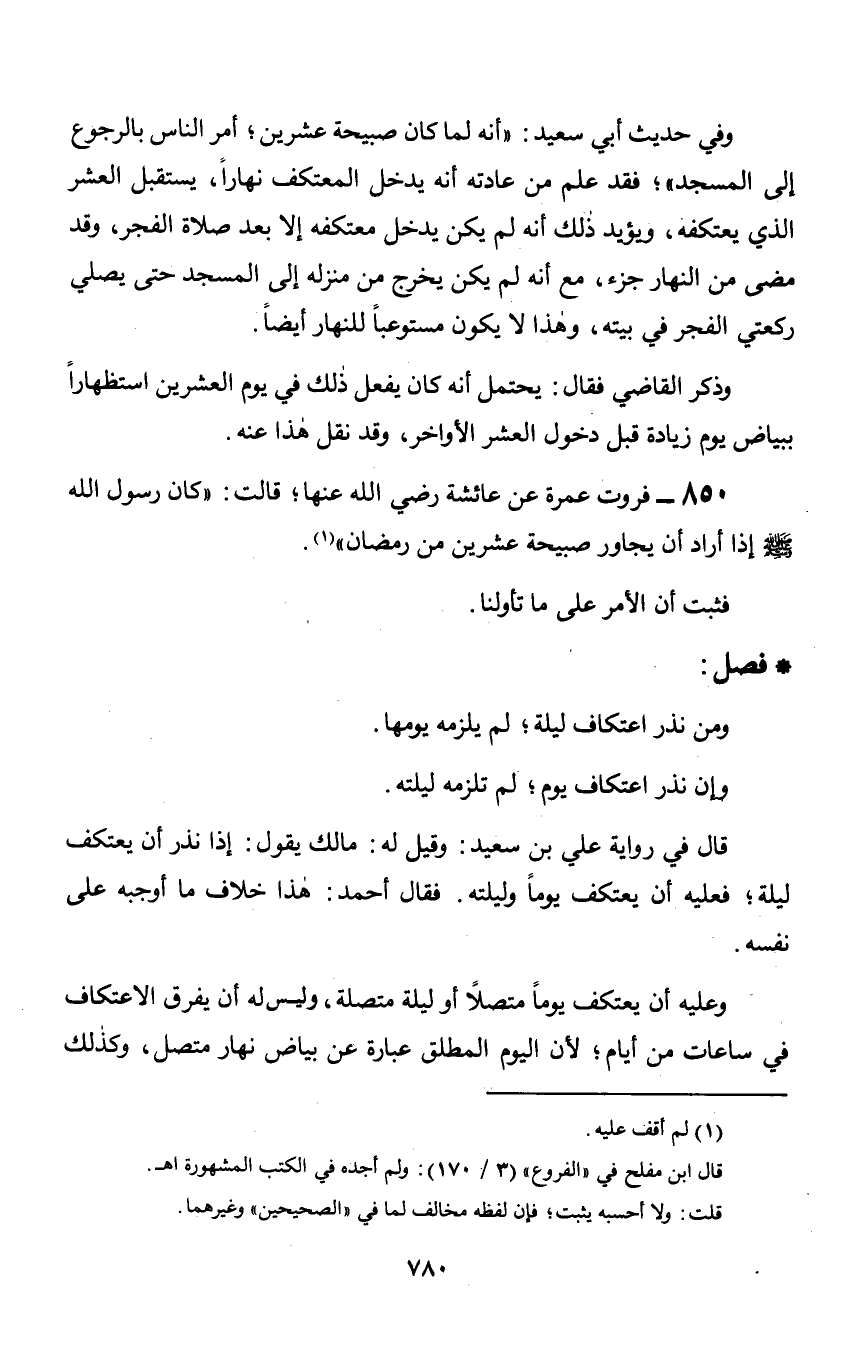 وفي حديث أبي سعيد: «أنه لما كان صبيحة عشرين؛ أمر الناس بالرجوع
إلى المسجد»؛ فقد علم من عادته أنه يدخل المعتكف نهاراً، يستقبل العشر
الذي يعتكفه، ويؤيد ذٰلك أنه لم يكن يدخل معتكفه إلا بعد صلاة الفجر، وقد
مضى من النهار جزء، مع أنه لم يكن يخرج من منزله إلى المسجد حتى يصلي
ركعتي الفجر في بيته، وهٰذا لا يكون مستوعباً للنهار أيضاً.
وذكر القاضي فقال: يحتمل أنه كان يفعل ذٰلك في يوم العشرين استظهاراً
ببياض يوم زيادة قبل دخول العشر الأواخر، وقد نقل هٰذا عنه.
٨٥٠ ــ فروت عمرة عن عائشة رضي الله عنها؛ قالت: «كان رسول الله
ﷺ إذا أراد أن يجاور صبيحة عشرين من رمضان»(١).
فثبت أن الأمر على ما تأولنا.
* فصل:
ومن نذر اعتكاف ليلة؛ لم يلزمه يومها.
وإن نذر اعتكاف يوم؛ لم تلزمه ليلته.
قال في رواية علي بن سعيد: وقيل له: مالك يقول: إذا نذر أن يعتكف
ليلة؛ فعليه أن يعتكف يوماً وليلته. فقال أحمد: هٰذا خلاف ما أوجبه على
نفسه.
وعليه أن يعتكف يوماً متصلًا أو ليلة متصلة، وليس له أن يفرق الاعتكاف
في ساعات من أيام؛ لأن اليوم المطلق عبارة عن بياض نهار متصل، وكذٰلك
(١) لم أقف عليه.
قال ابن مفلح في «الفروع» (٣ / ١٧٠): ولم أجده في الكتب المشهورة اهـ.
قلت: ولا أحسبه يثبت؛ فإن لفظه مخالف لما في «الصحيحين» وغيرهما.
٧٨٠